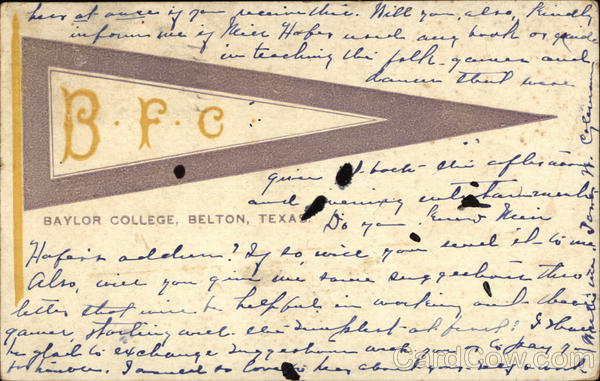 her at once if you receive this. Will you, also, kindly
inform me if Miss Hofer used any book or guide
in teaching the folk-games and
dances that were
B. F. C
given both the afternoon
and evening entertainments
BAYLOR COLLEGE, BELTON, TEXAS.
Do you know Miss
Hofer's address? If so will you send it to me
Also, will you give me some suggestions thro
letter that will be helpful in working out these
games starting with the simplest at first? I shall
be glad to exchange suggestions to pay you
for I would so love to hear
CardCow.com